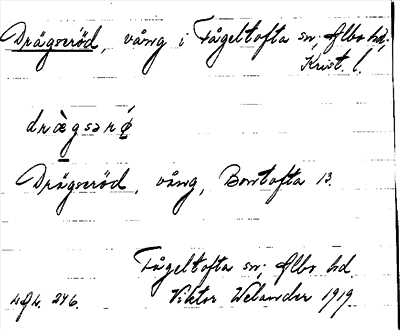 Drägseröd, vång i Fågeltofta sn, Albo hd,
Krist. l.
dràgsərǿ
Drägseröd, vång, Bontofta 13.
Fågeltofta sn, Albo hd.
246. Viktor Welander 1919